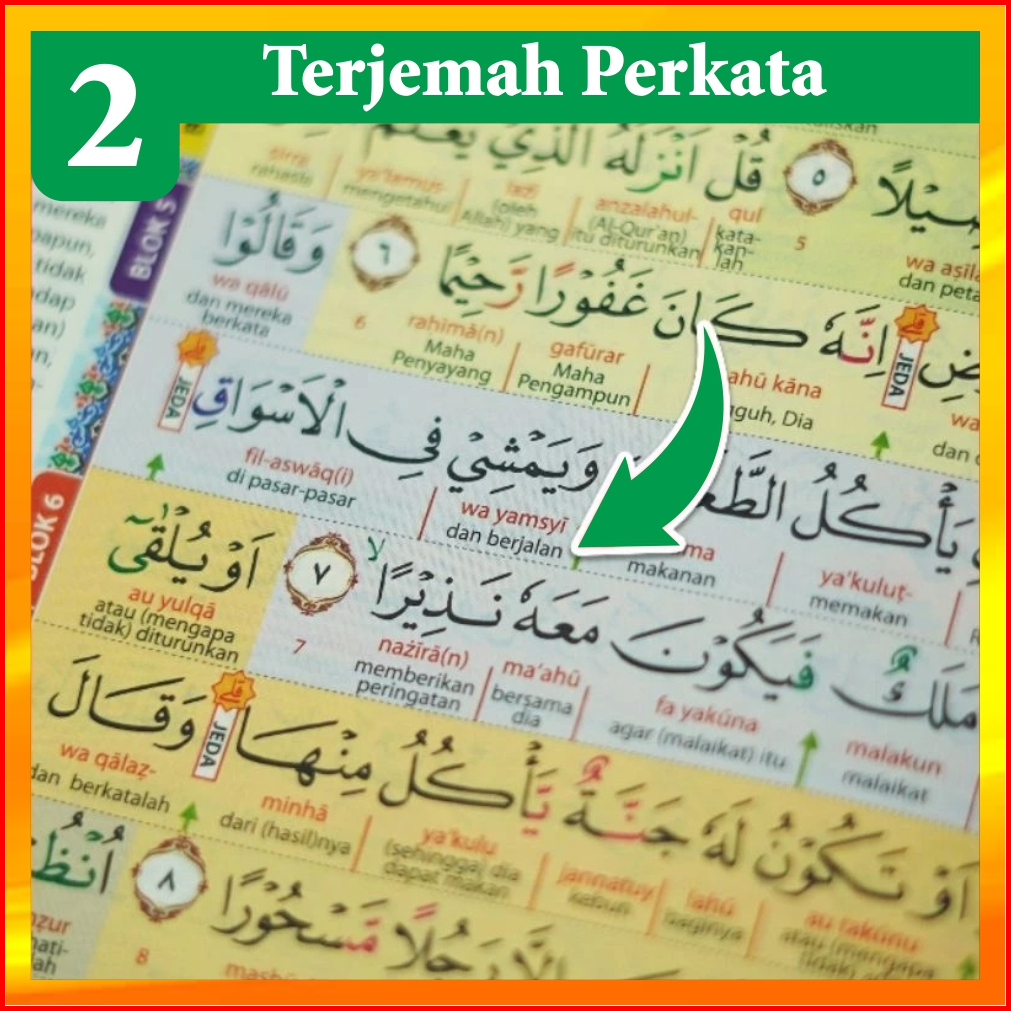 2
Terjemah Perkata
قُلْ اَنْزَلَهُ الَّذِيْ يَعْلَمُ
٥
qul
anzalahul-
lażī
ya‘lamus-
sirra
kata-
kan-
lah
(Al-Qur'an)
itu diturunkan
(oleh
Allah) yang
mengetahui
rahasia
5
dan peta
BLOK 5
mereka
tidak
اِنَّهٗ كَانَ غَفُوْرًا رَّحِيْمًا ٦ وَقَالُوْا
JEDA
ahū kāna
gafūrar
rahīmā(n)
6
wa qālū
guh, Dia
Maha
Pengampun
Maha
Penyayang
dan mereka
berkata
يَأْكُلُ الطَّعَ وَيَمْشِيْ فِى الْاَسْوَاقِۗ
JEDA
ya'kuluṭ-
ma
wa yamsyī
fil-aswāq(i)
memakan
makanan
dan berjalan
di pasar-pasar
BLOK 6
مَلَكٌ فَيَكُوْنَ مَعَهٗ نَذِيْرًاۙ ٧ اَوْ يُلْقٰٓى
malakun
fa yakūna
ma‘ahū
nażīrā(n)
7
au yulqā
malaikat
agar (malaikat) itu
bersama
dia
memberikan
peringatan
atau (mengapa
tidak) diturunkan
اَوْ تَكُوْنُ لَهٗ جَنَّةٌ يَّأْكُلُ مِنْهَاۗ وَقَالَ
JEDA
au takūnu
lahū
jannatuy
ya'kulu
minhā
wa qālaẓ-
atau (mengapa
tidak)
baginya
kebun
(sehingga) dia
dapat makan
dari (hasil)nya
dan berkatalah
رَجُلًا مَّسْحُوْرًا ٨
8